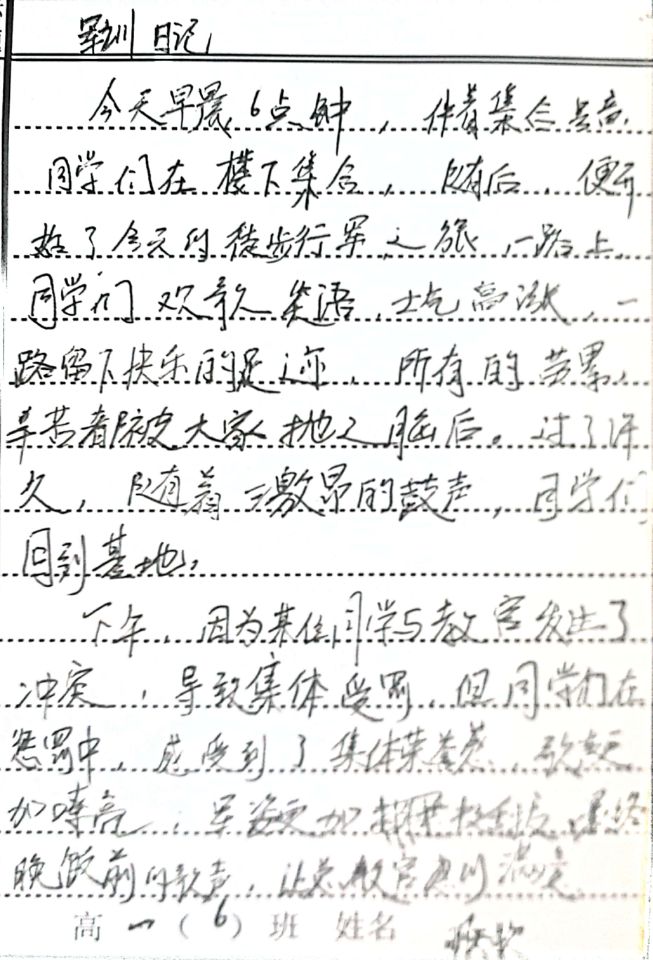 军训日记
今天早晨6点钟，伴着集合号音，
同学们在楼下集合，随后，便开
始了今天的徒步行军之旅，一路上，
同学们欢歌笑语，士气高涨，一
路留下快乐的足迹，所有的劳累，
辛苦都被大家抛之脑后。过了许
久，随着激昂的鼓声，同学们
回到基地。
下午，因为某位同学与教官发生了
冲突，导致集体受罚，但同学们在
惩罚中，感受到了集体荣誉感，歌声更
加嘹亮，军姿更加，最终
晚饭前的歌声，让总教官
高一（6）班 姓名